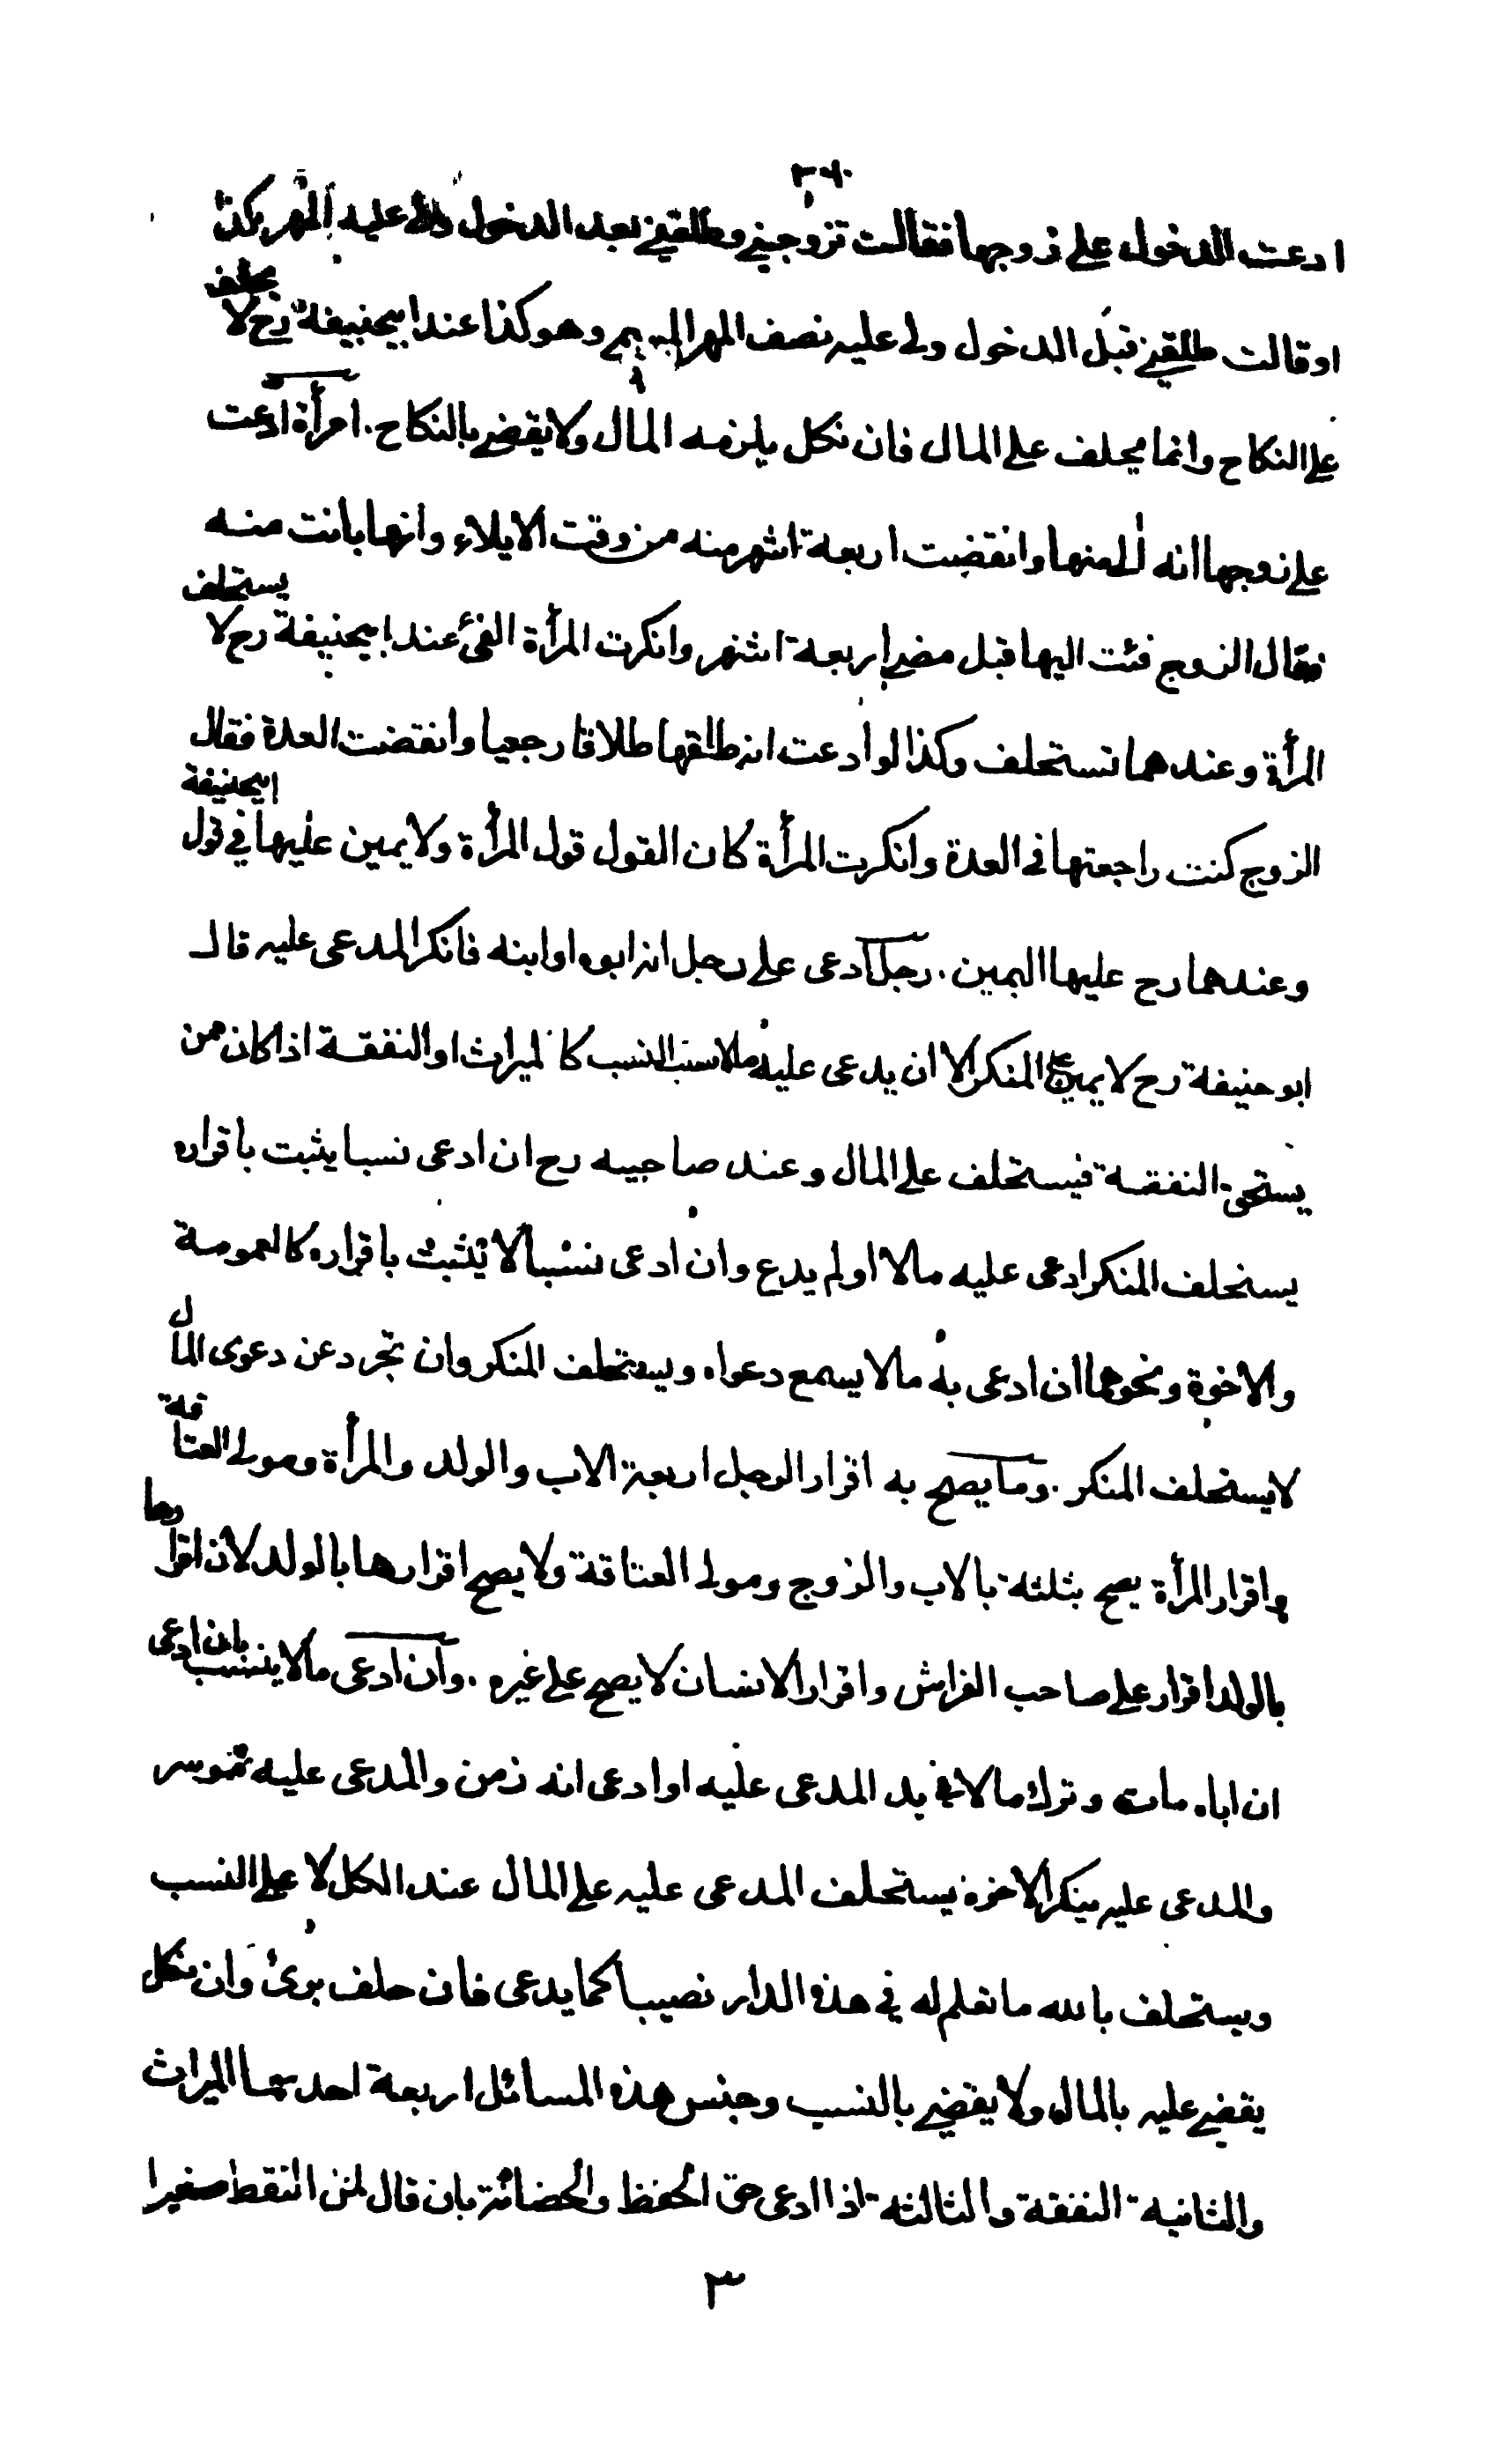 ادعت الدخول على زوجها فقالت تزوجني وطلقني بعد الدخول ولى عليه المهر بكذا
او قالت طلقني قبل الدخول ولى عليه نصف المهر وهو كذا عند ابيحنيفة رح لا يحلف
على النكاح وانما يحلف على المال فان نكل يلزمه المال ولا يقضى بالنكاح . امرأة ادعت
على زوجها انه الى منها وانقضت اربعة اشهر منه من وقت الايلاء وانها بانت منه
فقال الزوج فئت اليها قبل مضى اربعة اشهر وانكرت المرأة الفئ عند ابيحنيفة رح لا يستحلف
المرأة وعندهما تستحلف وكذا لو ادعت انه طلقها طلاقا رجعيا وانقضت العدة فقال
الزوج كنت راجعتها في العدة وانكرت المرأة كان القول قول المرأة ولا يمين عليها في قول ابيحنيفة
وعندهما رح عليها اليمين . رجل ادعى على رجل انه ابوه او ابنه فانكر المدعى عليه قال
ابو حنيفة رح لا يمين على المنكر الا ان يدعى عليه مالا بسبب النسب كالميراث او النفقة اذا كان ممن
يستحق النفقة فيستحلف على المال وعند صاحبيه رح ان ادعى نسبا يثبت باقراره
يستحلف المنكر ادعى عليه مالا او لم يدع وان ادعى نسبا لا يثبت باقراره كالعمومة
والاخوة ونحوهما ان ادعى به مالا يسمع دعواه ويستحلف المنكر وان تجرد عن دعوى المال
لا يستحلف المنكر . وما يصح به اقرار الرجل اربعة الاب والولد والمرأة ومولى العتاقة
واقرار المرأة يصح بثلثة بالاب والزوج ومولى العتاقة ولا يصح اقرارها بالولد لان اقرارها
بالولد اقرار على صاحب الفراش واقرار الانسان لا يصح على غيره . وان ادعى مالا بنسب بان ادعى
ان اباه مات وترك مالا في يد المدعى عليه او ادعى انه زمن والمدعى عليه موسر
والمدعى عليه ينكر الاخوة يستحلف المدعى عليه على المال عند الكل لا على النسب
ويستحلف بالله ما تعلم له في هذه الدار نصيبا كما يدعى فان حلف برئ وان نكل
يقضى عليه بالمال ولا يقضى بالنسب وجنس هذه المسائل اربعة احديها الميراث
والثانية النفقة والثالثة اذا ادعى حق الحفظ والحضانة بان قال لمن التقط صغيرا
٣